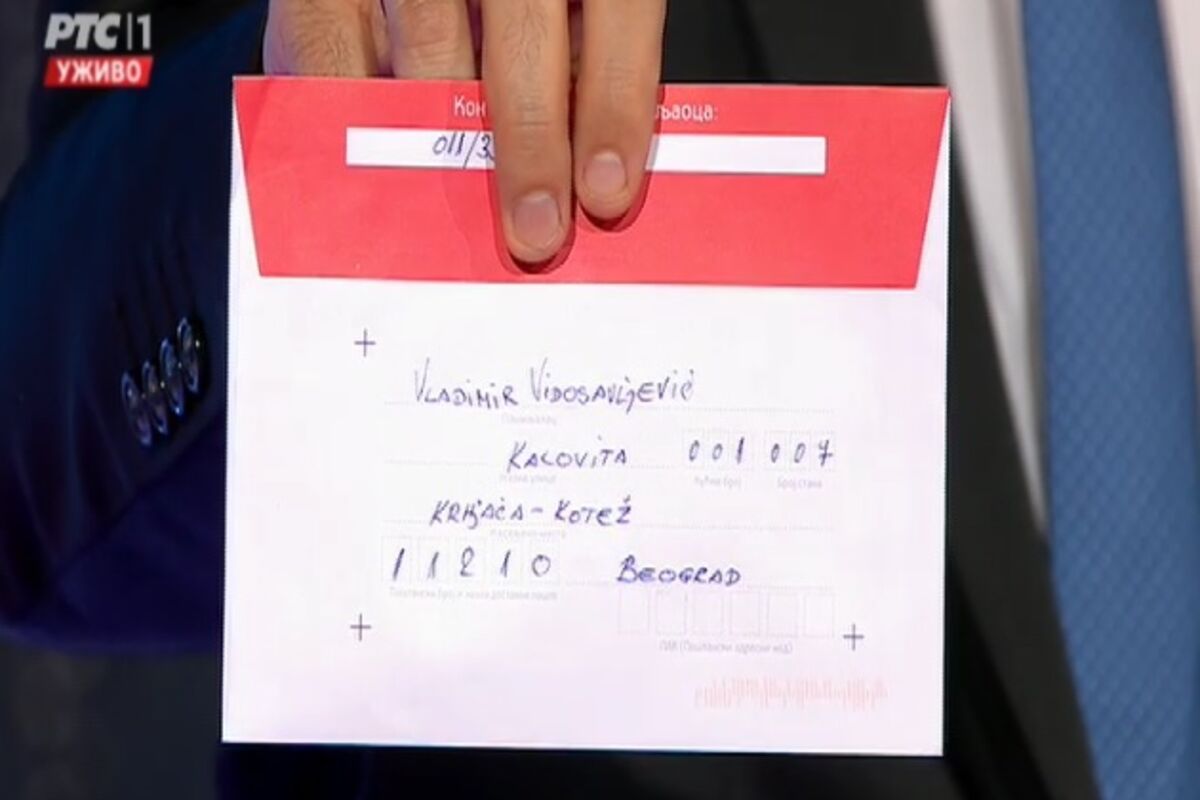 РТС 1
УЖИВО
Кон љаоца:
011/3
VLADIMIR VIDOSAVLJEVIĆ
KALOVITA 001 007
Назив улице Кућни број Број стана
KRNJAČA - KOTEŽ
11210 BEOGRAD
Поштански број и назив доставне поште
ПАК (Поштански адресни код)